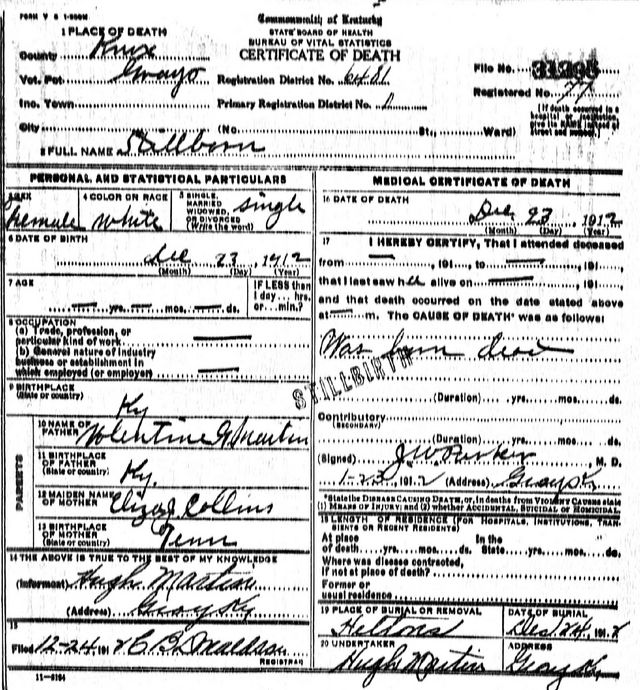 FORM V S 1-500M.
Commonwealth of Kentucky
STATE BOARD OF HEALTH
BUREAU OF VITAL STATISTICS
CERTIFICATE OF DEATH
1 PLACE OF DEATH
County Knox
Vot. Pct Grays Registration District No. 6481 File No. 31265
Inc. Town Primary Registration District No. Registered No. 77
City (No. St., Ward) [If death occurred in a hospital or institution, give its NAME, instead of street and number.]
2 FULL NAME Stillborn
PERSONAL AND STATISTICAL PARTICULARS
3 SEX Female
4 COLOR OR RACE White
5 SINGLE, MARRIED, WIDOWED, OR DIVORCED (Write the word) Single
6 DATE OF BIRTH Dec 23 1912
(Month) (Day) (Year)
7 AGE — yrs. — mos. — ds. IF LESS than 1 day... hrs. or... min.?
8 OCCUPATION
(a) Trade, profession, or
particular kind of work —
(b) General nature of industry
business or establishment in
which employed (or employer) —
9 BIRTHPLACE
(State or country) Ky
PARENTS
10 NAME OF
FATHER Valentine G. Martin
11 BIRTHPLACE
OF FATHER
(State or country) Ky.
12 MAIDEN NAME
OF MOTHER Eliza J. Collins
13 BIRTHPLACE
OF MOTHER
(State or country) Tenn
14 THE ABOVE IS TRUE TO THE BEST OF MY KNOWLEDGE
(Informant) Hugh Martin
(Address) Gray Ky
15
Filed 12-24 1912 C B
REGISTRAR
11-5184
MEDICAL CERTIFICATE OF DEATH
16 DATE OF DEATH
Dec 23 1912
(Month) (Day) (Year)
17 I HEREBY CERTIFY, That I attended deceased
from — , 191... , to — , 191... ,
that I last saw h alive on — , 191... ,
and that death occurred on the date stated above
at — m. The CAUSE OF DEATH* was as follows:
Was born dead
STILLBIRTH
(Duration) yrs. mos. ds.
Contributory
(SECONDARY)
(Duration) yrs. mos. ds.
(Signed) J W Parker, M. D.
1-23 1912 (Address) Gray Ky
*State the DISEASE CAUSING DEATH, or, in deaths from VIOLENT CAUSES state
(1) MEANS OF INJURY; and (2) whether ACCIDENTAL, SUICIDAL or HOMICIDAL
18 LENGTH OF RESIDENCE (FOR HOSPITALS, INSTITUTIONS, TRANSIENTS OR RECENT RESIDENTS)
At place In the
of death yrs. mos. ds. State yrs. mos. ds.
Where was disease contracted,
If not at place of death?
Former or
usual residence
19 PLACE OF BURIAL OR REMOVAL Heltons
DATE OF BURIAL Dec 24, 1912
20 UNDERTAKER Hugh Martin
ADDRESS Gray Ky